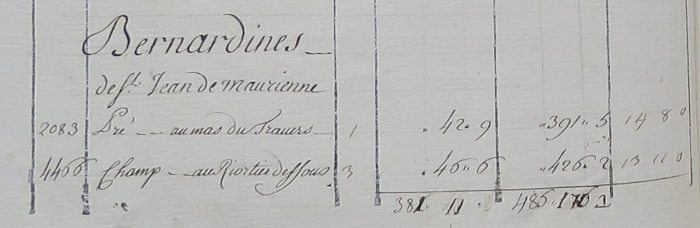 Bernardines
de St. Jean de maurienne
2083 Pré — au mas du Travers 1 „ 42 „ 9 „ 391 „ 5 14 8 0
4466 Champ — au Riortier dessous 3 „ 46 „ 6 „ 426 „ 2 13 11 0
381 11